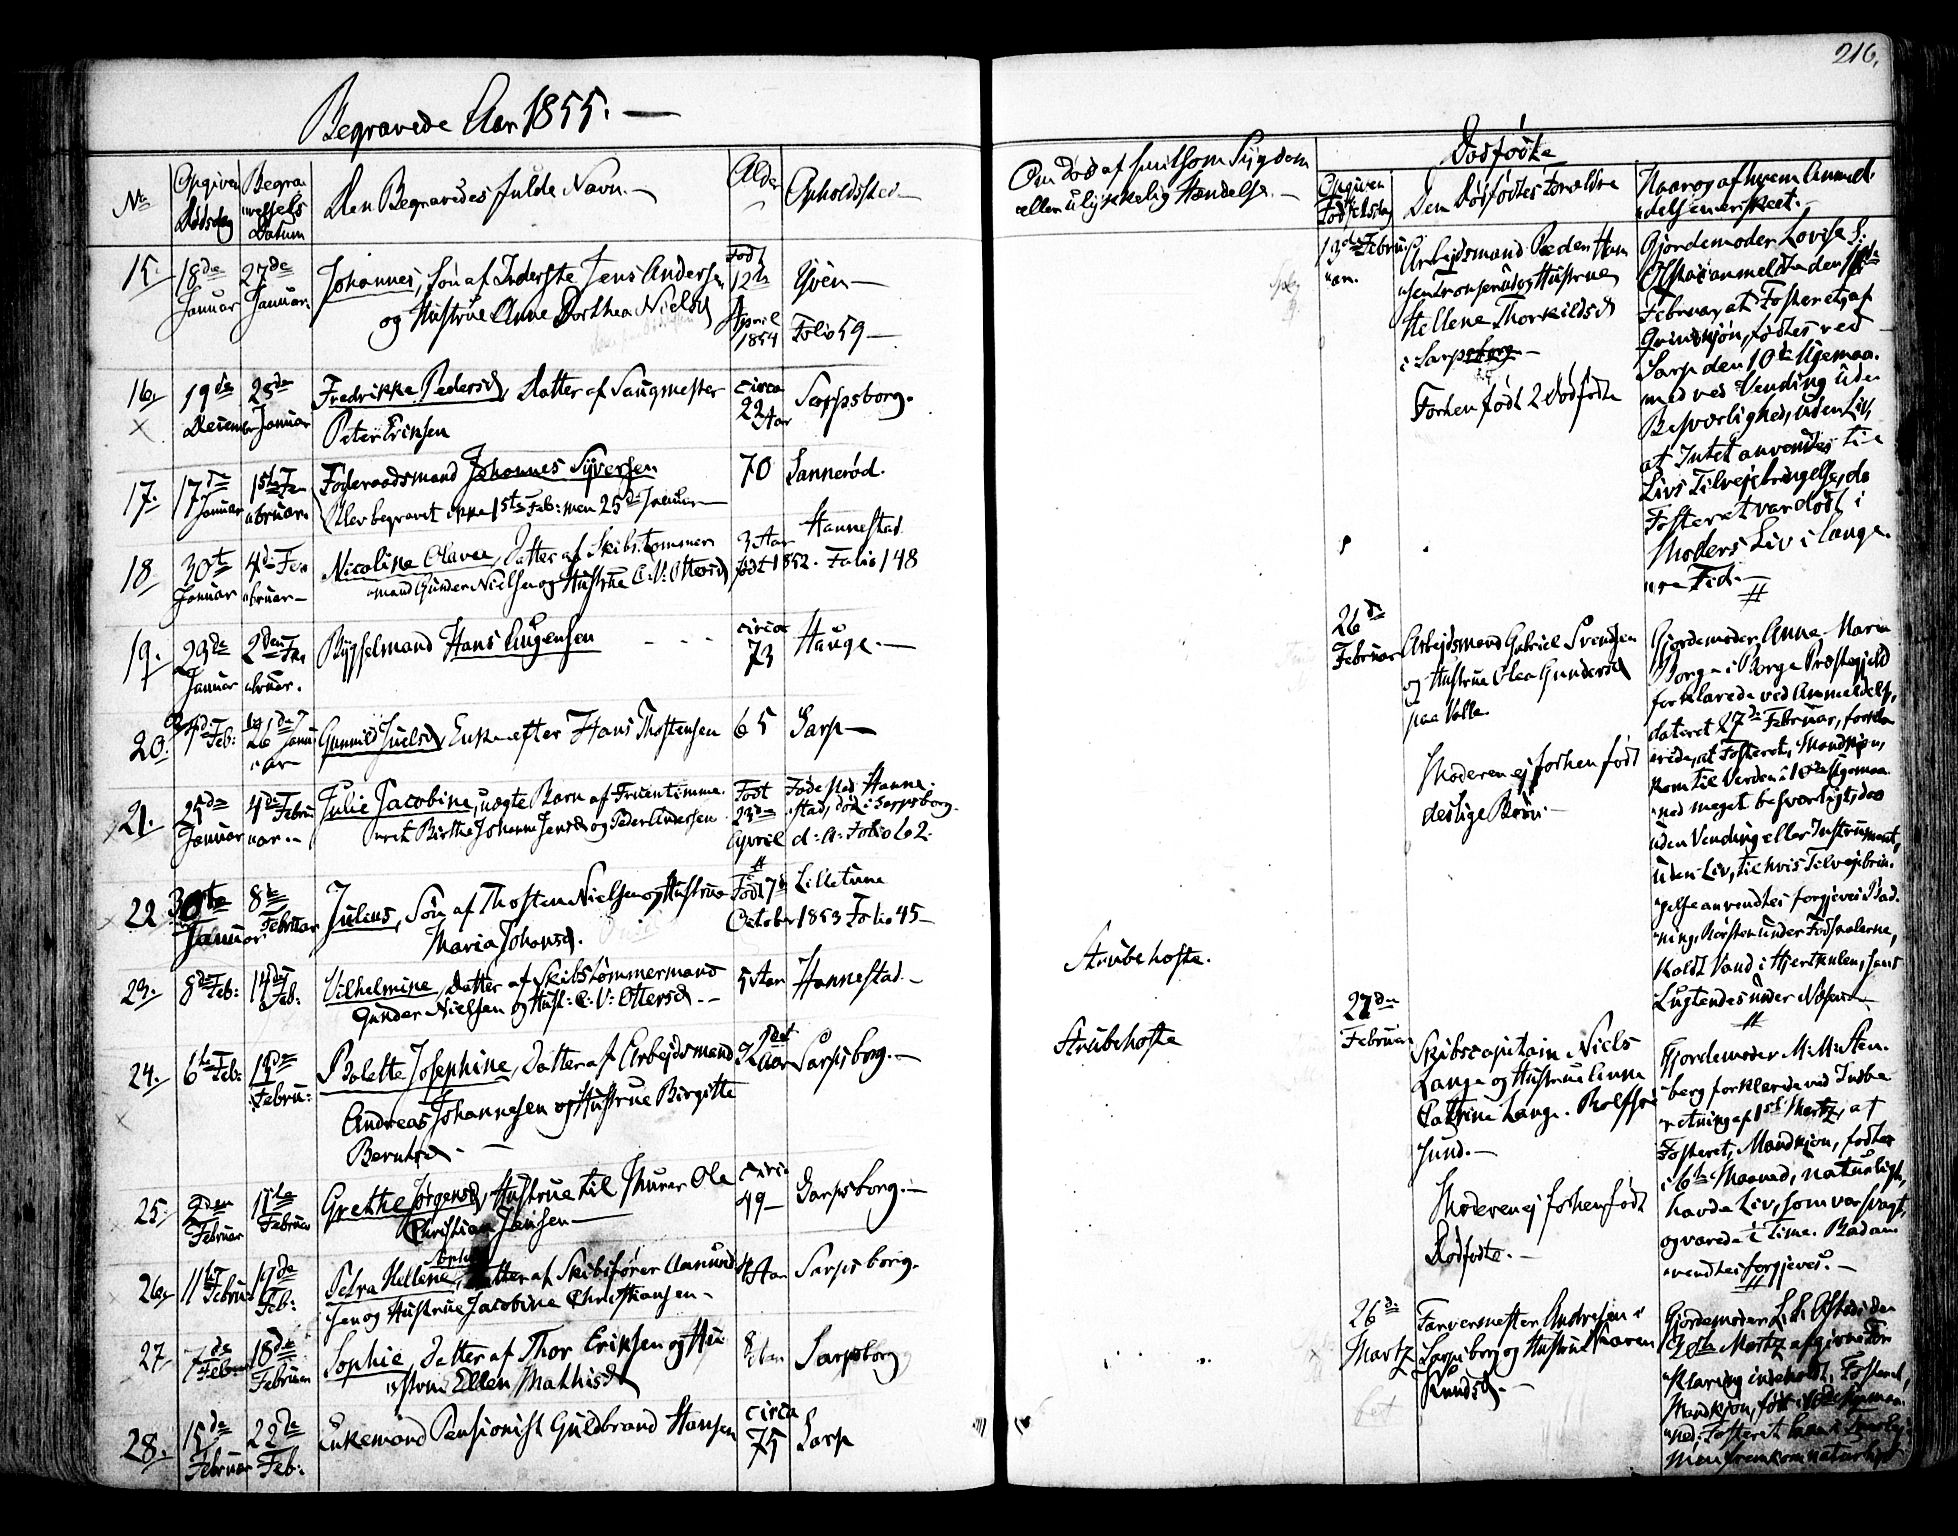 216.
Begravede Aar 1855. —
No
Opgiven
Dødsdag
Begra-
velsens
Datum
Den Begravedes fulde Navn. —
Alder
Opholdssted —
Om Død af smitsom Sygdom
eller ulykkelig Hændelse. —
Dødfødte
Opgiven
Fødselsdag
Den Dødfødtes Forældre
Naar og af hvem Anmel-
delsen er skeet. —
15. 18de Januar 27de Januar.
Johannes, Søn af Inderste Jens Andersen
og Hustrue Anne Dorthea Nielsd
Født
12te
April
1854
Yven —
Folio 59 —
16. 19de December 25de Januar
Fredrikke Pedersd, Datter af Saugmester
Peter Eriksen
circa
22 Aar
Sarpsborg.
17. 17de Januar 1ste Fe-
bruar.
Føderaadsmand Johannes Syversen
Blev begravet ikke 1ste Feb: men 25de Januar —
70 Sannerød.
18 30te Januar 4de Fe-
bruar —
Nicoline Olava, Datter af Skibstømmer-
mand Gunder Nielsen og Hustrue C. V. Ottersd
3 Aar
født 1852. Folio 148
Hannestad
19. 29de Januar 2den Fe-
bruar.
Bygselmand Hans Augensen
circa
73
Hauge. —
20. 4de Feb: 26de Janu-
ar
Gunnild Juelsd, Enke efter Hans Thostensen
65 Sarp —
21. 25de Januar 4de Febru-
uar. —
Julie Jacobine, uægte Barn af Fruentimme-
ret Birthe Johanne Jensd og Peder Andersen
Født
23de
April
Fødested Hanne-
stad, død i Sarpsborg.
d: A: Folio 62.
22 30te Januar 8de Februar
Julius, Søn af Thosten Nielsen og Hustrue
Maria Johansd.
Født 7de
October 1853 Folio 45 —
Lilletune
23. 8de Feb: 14de Feb:
Vilhelmine, Datter af Skibstømmermand
Gunder Nielsen og Hust: C: V: Ottersd. —
5 Aar Hannestad. —
Strubehoste.
24. 6te Feb: 13de Febru:
Bolette Josephine, Datter af Arbejdsmand
Andreas Johannesen og Hustrue Birgitte
Berntsd. —
Aar Sarpsborg. —
Strubehoste
25. 9den Februar 11te Februar
Grethe Jørgensd, Hustrue til Murer Ole
Christian Jensen —
circa
49 —
Sarpsborg. —
26. 11te Februar 19de Feb:
Petra Hellene, Datter af Skibsfører Aamund-
sen og Hustrue Jacobine Christiansen —
4 Aar Sarpsborg.
27. 7de Februar 18de Februar
Sophie, Datter af Thor Eriksen og Hu-
strue Ellen Mathisd
Aar Sarpsborg
28. 15de Februar 22de Feb:
Enkemand Pensionist Guldbrand Hansen
circa
75
Sarp
13de Febru-
ar.
Arbejdsmand Peder Han-
sen og Hustrue
Hellene Thorkildsd
i Sarpsborg —
Forhen født 2 Dødfødte
Gjordemoder Lovise S:
Ofstad anmeldte den
Februar, at Fosteret, af
Qvindkjøn, fødtes ved
Sarp den 10de Ugemaa-
ned ved Vending uden
Besværlighed, uden Liv,
at Intet anvendtes til
Livs Tilvejebringelse, da
Fosteret var dødt i
Moders Liv i længe-
re Tid. —
26de
Februar
Arbejdsmand Gabriel Svendsen
og Hustrue Olea Gundersd
paa Valle.
Moderen ej forhen født
deslige Børn —
Gjordemoder Anne Marie
Borge i Borge Præstegjeld
forklarede ved Anmeldelse,
dateret 27de Februar, forkla-
rede, at Fosteret, Mandkjøn,
kom til Verden i 10de Ugemaa-
ned meget besværligt, dog
uden Vending eller Instrument,
uden Liv, til hvis Tilvejebrin-
gelse anvendtes forgjeves Bad-
ning, Børsten under Fodsaalerne,
koldt Vand i Hjertkulen, samt
Lugtendes under Næsen —
27de
Februar
Skibscapitain Niels
Lange og Hustrue Anne
Cathrine Lange. Rolfsøe
Sund. —
Moderen ej forhen født
Dødfødte. —
Gjordemoder M. M. Sten-
berg forklarede ved Indbe-
retning af 1ste Martz, at
Fosteret, Mandkjøn, fødtes
i 6te Maaned, naturligt,
havde Liv, som var svagt,
og varede 1 Time. Bad an-
vendtes forgjeves. —
26de
Martz
Farvermester Andresen i
Sarpsborg og Hustrue Maren
Knudsd. —
Gjordemoder L. S. Ofstads den
Martz afgivne For-
klaring indeholdt, Fosteret,
Mandkjøn, født i 10de Ugemaa-
ned. Fosteret
men fremkom naturligt